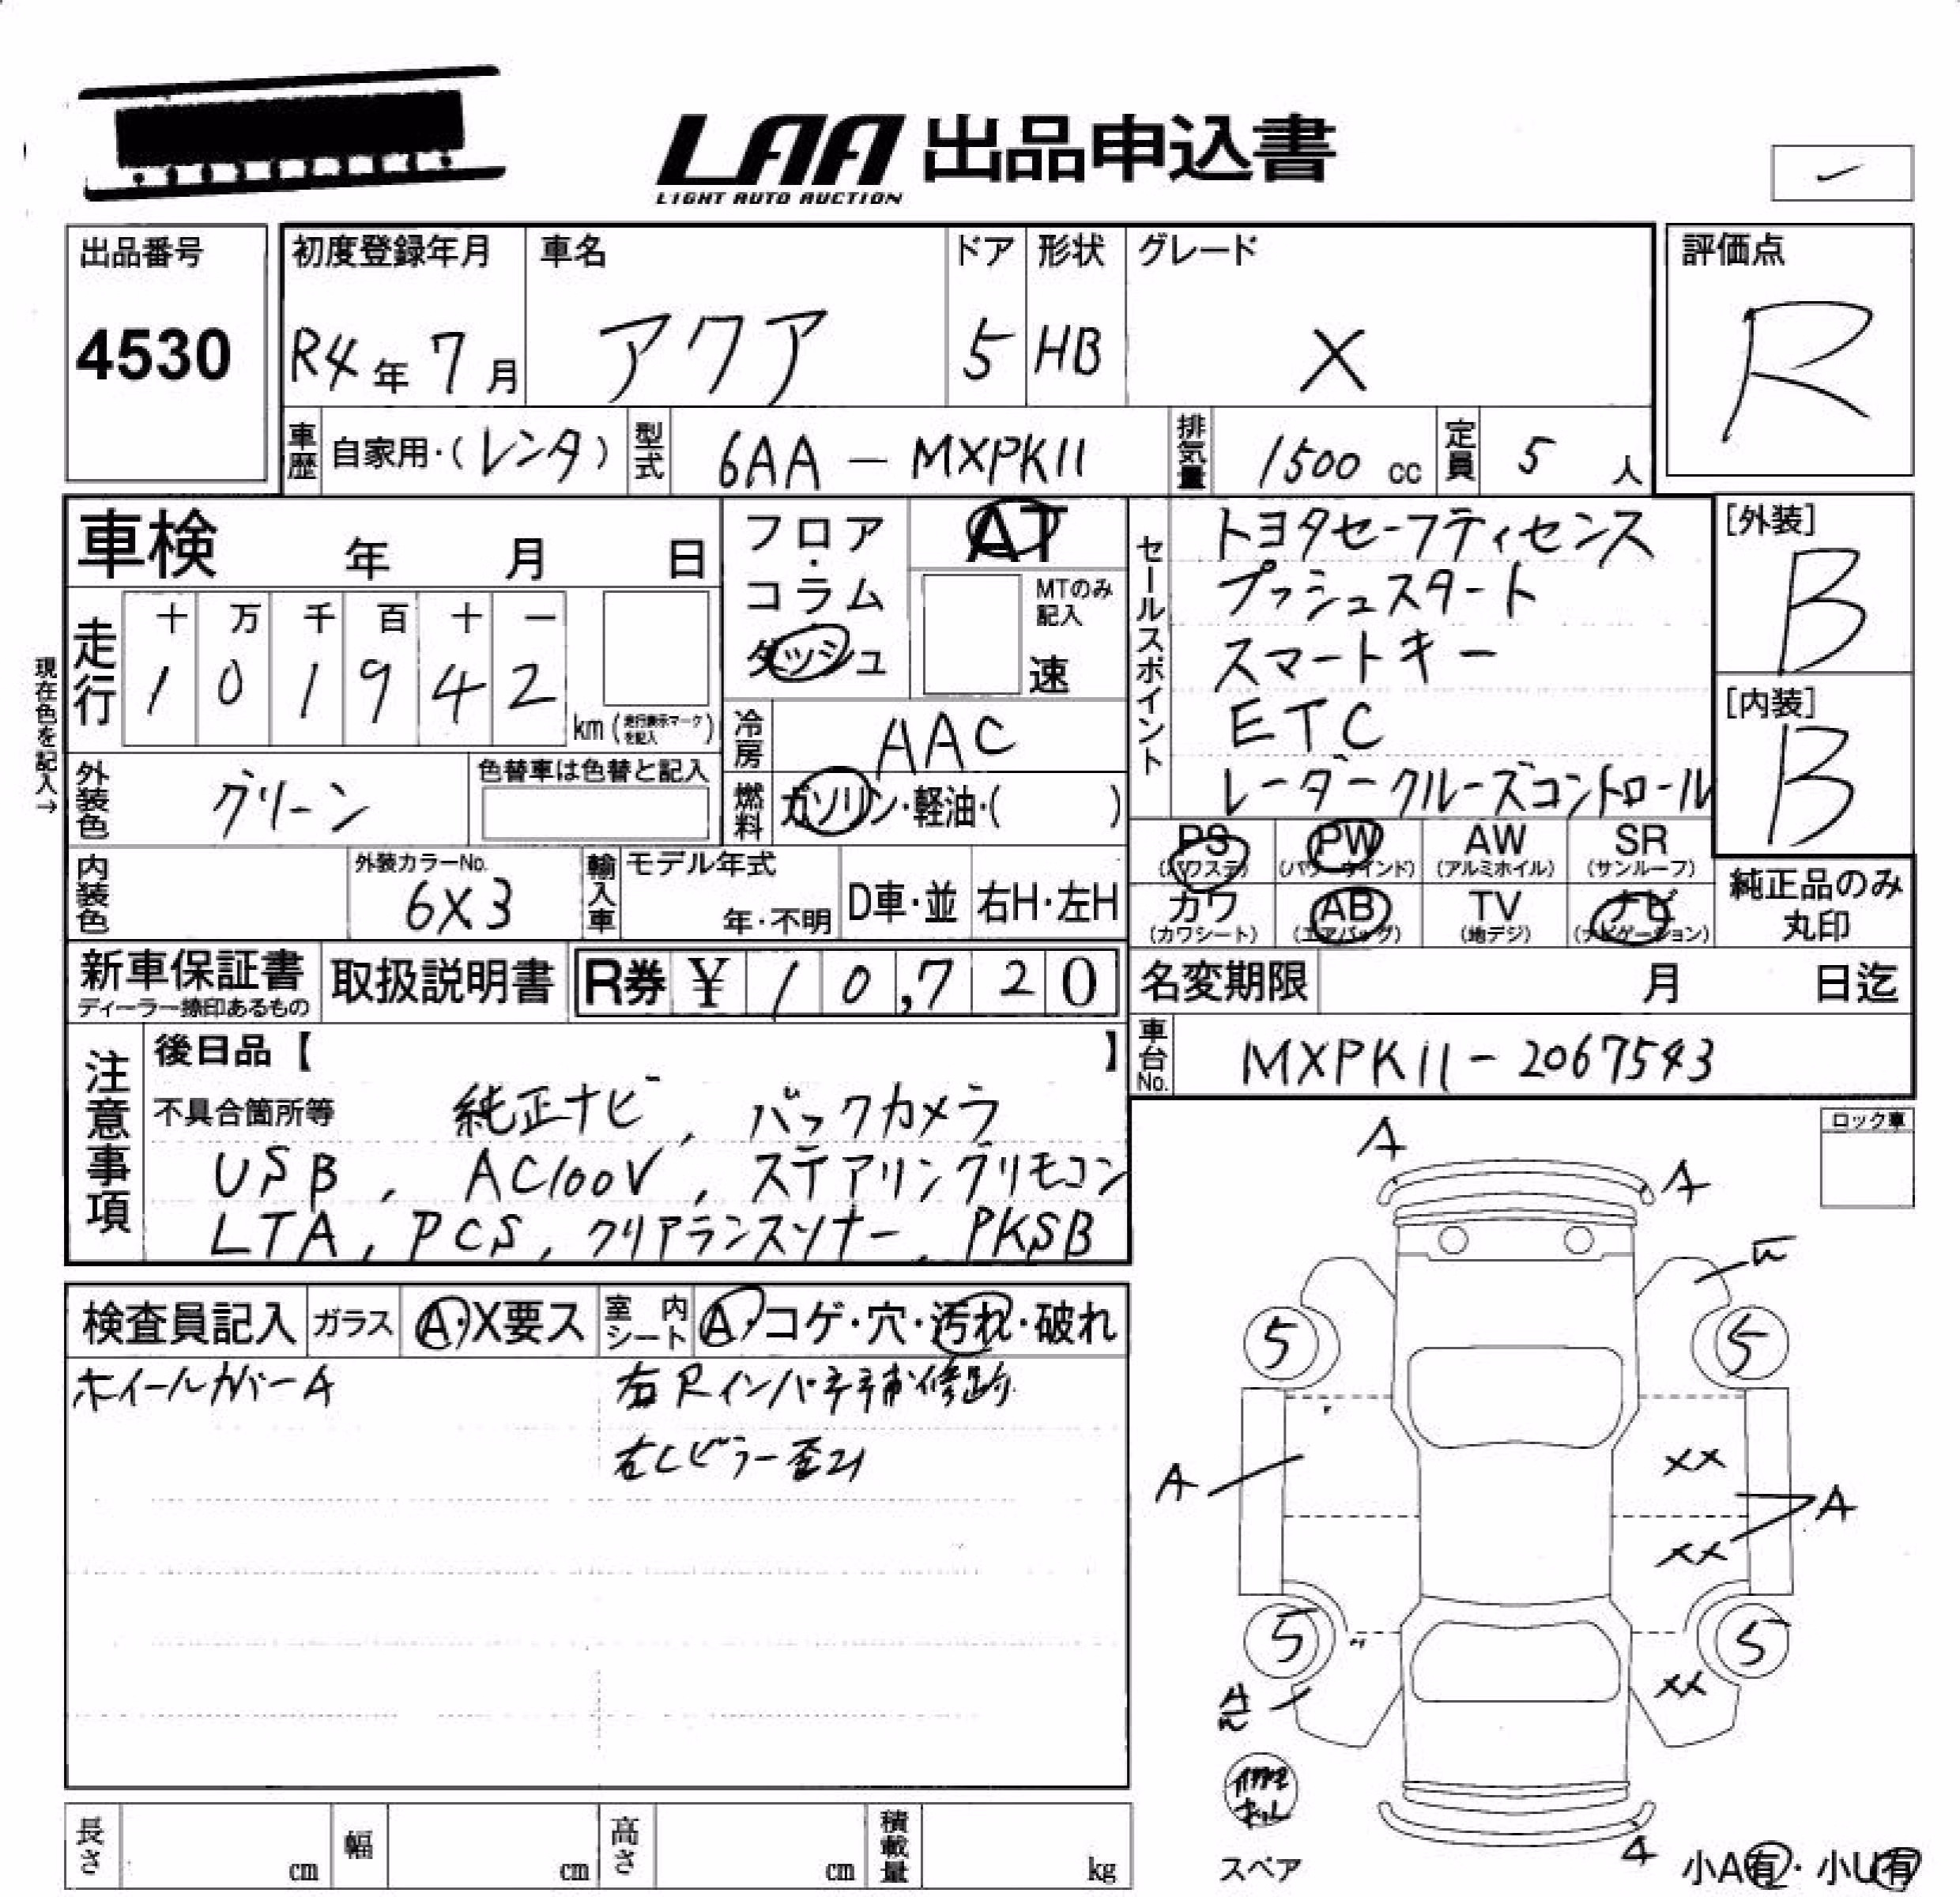 LAA 出品申込書
LIGHT AUTO AUCTION
出品番号
4530
初度登録年月
R4年 7月
車名
アクア
ドア
5
形状
HB
グレード
X
評価点
R
車歴 自家用・(レンタ)
型式 6AA - MXPK11
排気量 1500 cc
定員 5 人
車検 年 月 日
フロア・コラム
ダッシュ
AT
MTのみ記入
速
走行
十 万 千 百 十 一
1 0 1 9 4 2
km (走行表示マークを記入)
現在色を記入→
冷房 AAC
燃料 ガソリン・軽油・( )
外装色 グリーン
色替車は色替と記入
内装色
外装カラーNo.
6X3
輸入車
モデル年式
年・不明
D車・並
右H・左H
セールスポイント
トヨタセーフティセンス
プッシュスタート
スマートキー
ETC
レーダークルーズコントロール
[外装]
B
[内装]
B
PS (パワステ)
PW (パワーウインド)
AW (アルミホイル)
SR (サンルーフ)
カワ (カワシート)
AB (エアバッグ)
TV (地デジ)
ナビ (ナビゲーション)
純正品のみ
丸印
新車保証書
ディーラー捺印あるもの
取扱説明書
R券 ¥ 10,720
名変期限 月 日迄
車台No. MXPK11-2067543
注意事項
後日品【 】
不具合箇所等 純正ナビ, バックカメラ
USB, AC100V, ステアリングリモコン
LTA, PCS, クリアランスソナー, PKSB
検査員記入
ガラス A・X要ス
室内シート A・コゲ・穴・汚れ・破れ
ホイールカバーA
右Rインパネ補修跡
右Cピラー歪み
ロック車
A
A
5
5
A
XX
A
XX
5
5
XX
修理キット
スペア
A
小A有・小U有
長さ cm
幅 cm
高さ cm
積載量 kg